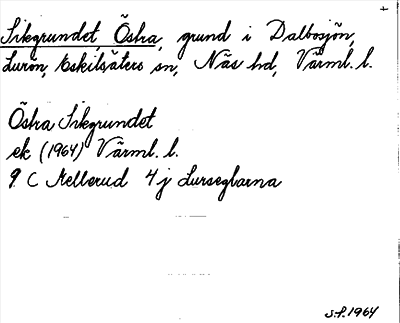 Sikgrundet, Östra, grund i Dalbosjön,
Lurön, Eskilsäters sn, Näs hd, Värml. l.
Östra Sikgrundet
ek (1964) Värml. l.
9 C Mellerud 4 j Lurseglarna
S.P. 1964